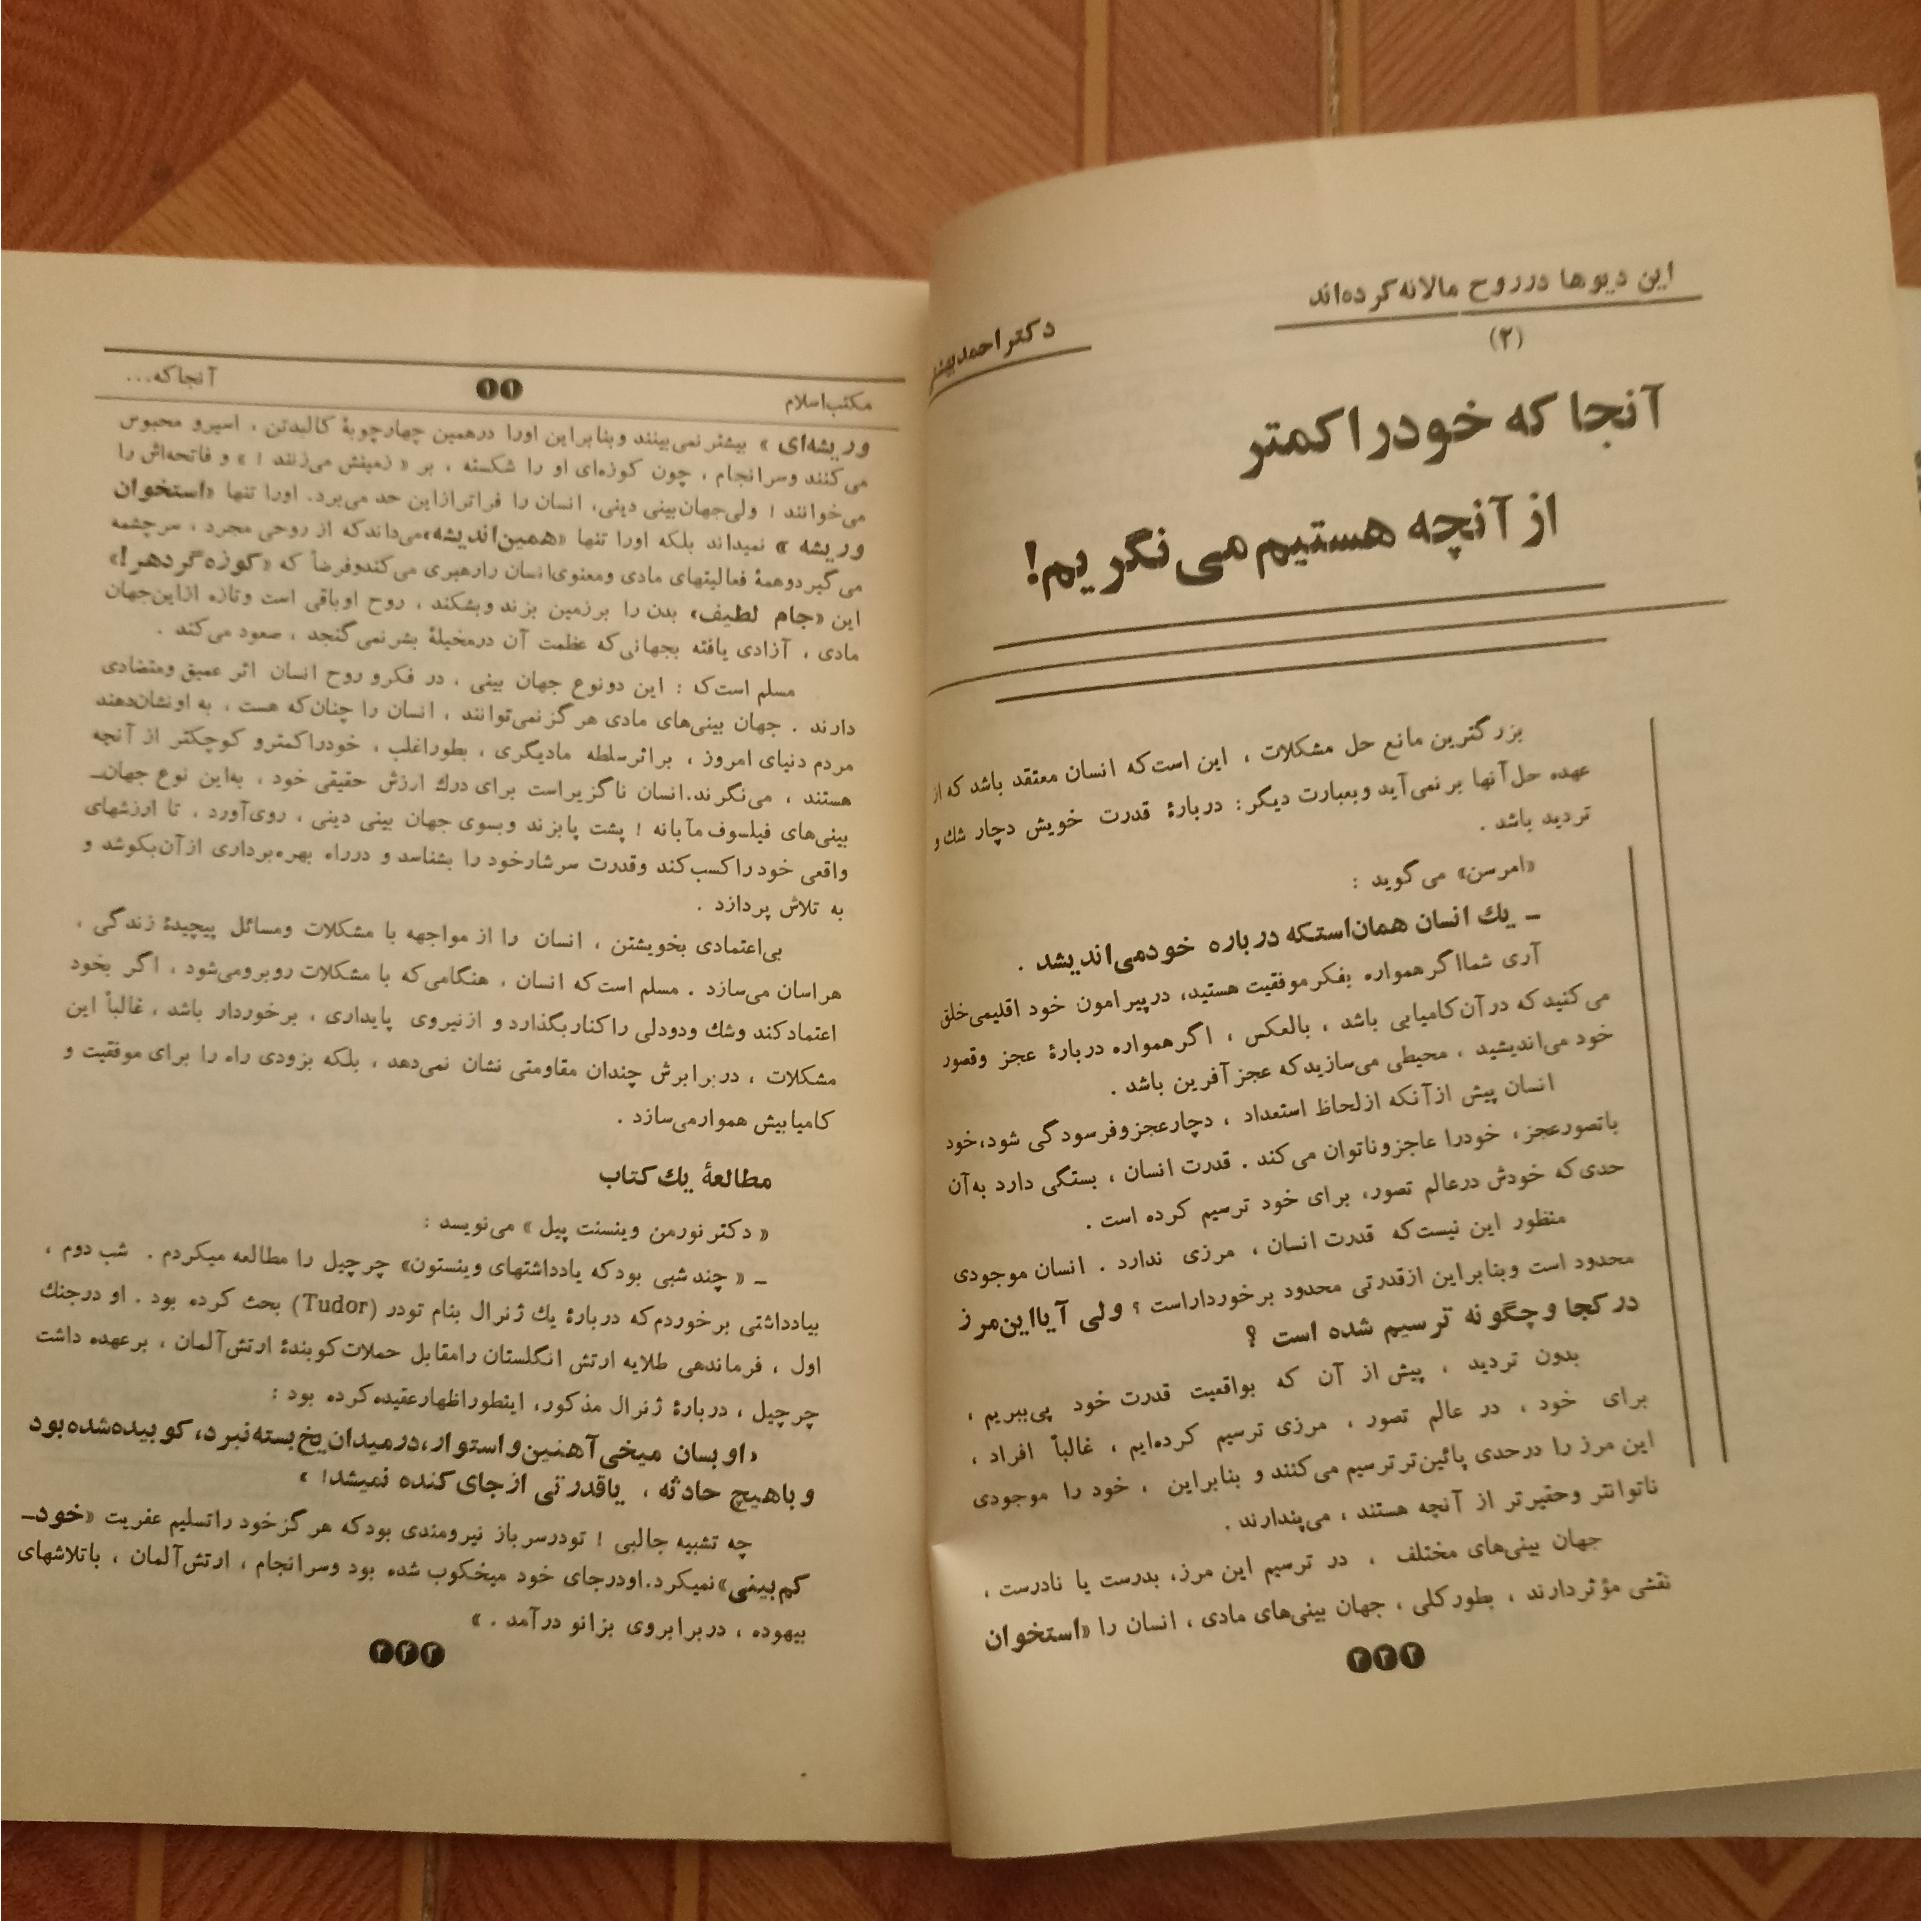 این دیوها درروح مالانه‌کرده‌اند
(۲)
دکتراحمدبهشتی
آنجا که خودراکمتر
ازآنچه هستیم می‌نگریم!
بزرگترین مانع حل مشکلات ، این است‌که انسان معتقد باشد که از
عهده حل‌آنها برنمی‌آید وبعبارت دیگر: دربارهٔ قدرت خویش دچار شك و
تردید باشد .
«امرسن» می‌گوید :
ـ یك انسان همان‌استکه درباره خودمی‌اندیشد .
آری شمااگرهمواره بفکرموفقیت هستید، درپیرامون خود اقلیمی‌خلق
می‌کنید که درآن‌کامیابی باشد ، بالعکس ، اگرهمواره دربارهٔ عجز وقصور
خود می‌اندیشید ، محیطی می‌سازیدکه عجزآفرین باشد .
انسان پیش ازآنکه ازلحاظ استعداد ، دچارعجزوفرسودگی شود،خود
باتصورعجز، خودرا عاجزوناتوان می‌کند . قدرت انسان ، بستگی دارد به‌آن
حدی‌که خودش درعالم تصور، برای خود ترسیم کرده است .
منظور این نیست‌که قدرت انسان ، مرزی ندارد . انسان موجودی
محدود است وبنابراین ازقدرتی محدود برخورداراست ؟ ولی آیااین‌مرز
درکجا وچگونه ترسیم شده است ؟
بدون تردید ، پیش از آن که بواقعیت قدرت خود پی‌ببریم ،
برای خود ، در عالم تصور ، مرزی ترسیم کرده‌ایم ، غالباً افراد ،
این مرز را درحدی پائین‌ترترسیم می‌کنند و بنابراین ، خود را موجودی
ناتوانتر وحقیرتر از آنچه هستند ، می‌پندارند .
جهان بینی‌های مختلف ، در ترسیم این مرز، بدرست یا نادرست ،
نقشی مؤثردارند ، بطورکلی ، جهان بینی‌های مادی ، انسان را «استخوان
مکتب‌اسلام
آنجاکه...
وریشه‌ای » بیشترنمی‌بینند وبنابراین اورا درهمین چهارچوبهٔ کالبدتن ، اسیرو محبوس
می‌کنند وسرانجام ، چون کوزه‌ای او را شکسته ، بر « زمینش می‌زنند ! » و فاتحه‌اش را
می‌خوانند ! ولی‌جهان‌بینی دینی، انسان را فراترازاین حد می‌برد. اورا تنها «استخوان
وریشه » نمیداند بلکه اورا تنها «همین‌اندیشه»می‌داندکه از روحی مجرد ، سرچشمه
می‌گیردوهمهٔ فعالیتهای مادی ومعنوی‌انسان رارهبری می‌کندوفرضاً که «کوزه‌گردهر!»
این «جام لطیف» بدن را برزمین بزند وبشکند ، روح اوباقی است وتازه ازاین‌جهان
مادی ، آزادی یافته بجهانی‌که عظمت آن درمخیلهٔ بشرنمی‌گنجد ، صعود می‌کند .
مسلم است‌که : این دونوع جهان بینی ، در فکرو روح انسان اثر عمیق ومتضادی
دارند . جهان بینی‌های مادی هرگزنمی‌توانند ، انسان را چنان‌که هست ، به اونشان‌دهند
مردم دنیای امروز ، براثرسلطه مادیگری ، بطوراغلب ، خودراکمترو کوچکتر از آنچه
هستند ، می‌نگرند.انسان ناگزیراست برای درك ارزش حقیقی خود ، به‌این نوع جهان‌ـ
بینی‌های فیلسوف‌مآبانه ! پشت پابزند وبسوی جهان بینی دینی ، روی‌آورد ، تا ارزشهای
واقعی خود راکسب‌کند وقدرت سرشارخود را بشناسد و درراه بهره‌برداری ازآن‌بکوشد و
به تلاش پردازد .
بی‌اعتمادی بخویشتن ، انسان را از مواجهه با مشکلات ومسائل پیچیدهٔ زندگی ،
هراسان می‌سازد . مسلم است‌که انسان ، هنگامی‌که با مشکلات روبرومی‌شود ، اگر بخود
اعتمادکند وشك ودودلی راکناربگذارد و ازنیروی پایداری ، برخوردار باشد ، غالباً این
مشکلات ، دربرابرش چندان مقاومتی نشان نمی‌دهد ، بلکه بزودی راه را برای موفقیت و
کامیابیش هموارمی‌سازد .
مطالعهٔ یك کتاب
« دکترنورمن وینسنت پیل » می‌نویسد :
ـ « چند شبی بودکه یادداشتهای وینستون» چرچیل را مطالعه میکردم . شب دوم ،
بیادداشتی برخوردم‌که دربارهٔ یك ژنرال بنام تودر (Tudor) بحث کرده بود . او درجنك
اول ، فرماندهی طلایه ارتش انگلستان رامقابل حملات‌کوبندهٔ ارتش‌آلمان ، برعهده داشت
چرچیل ، دربارهٔ ژنرال مذکور، اینطوراظهارعقیده‌کرده بود :
«اوبسان میخی‌آهنین‌واستوار،درمیدان‌یخ‌بسته‌نبرد،کوبیده‌شده‌بود
وباهیچ حادثه ، یاقدرتی ازجای‌کنده نمیشد! »
چه تشبیه جالبی ! تودرسرباز نیرومندی بودکه هرگزخود راتسلیم عفریت «خودـ
کم‌بینی»نمیکرد.اودرجای خود میخکوب شده بود وسرانجام ، ارتش‌آلمان ، باتلاشهای
بیهوده ، دربرابروی بزانو درآمد . »